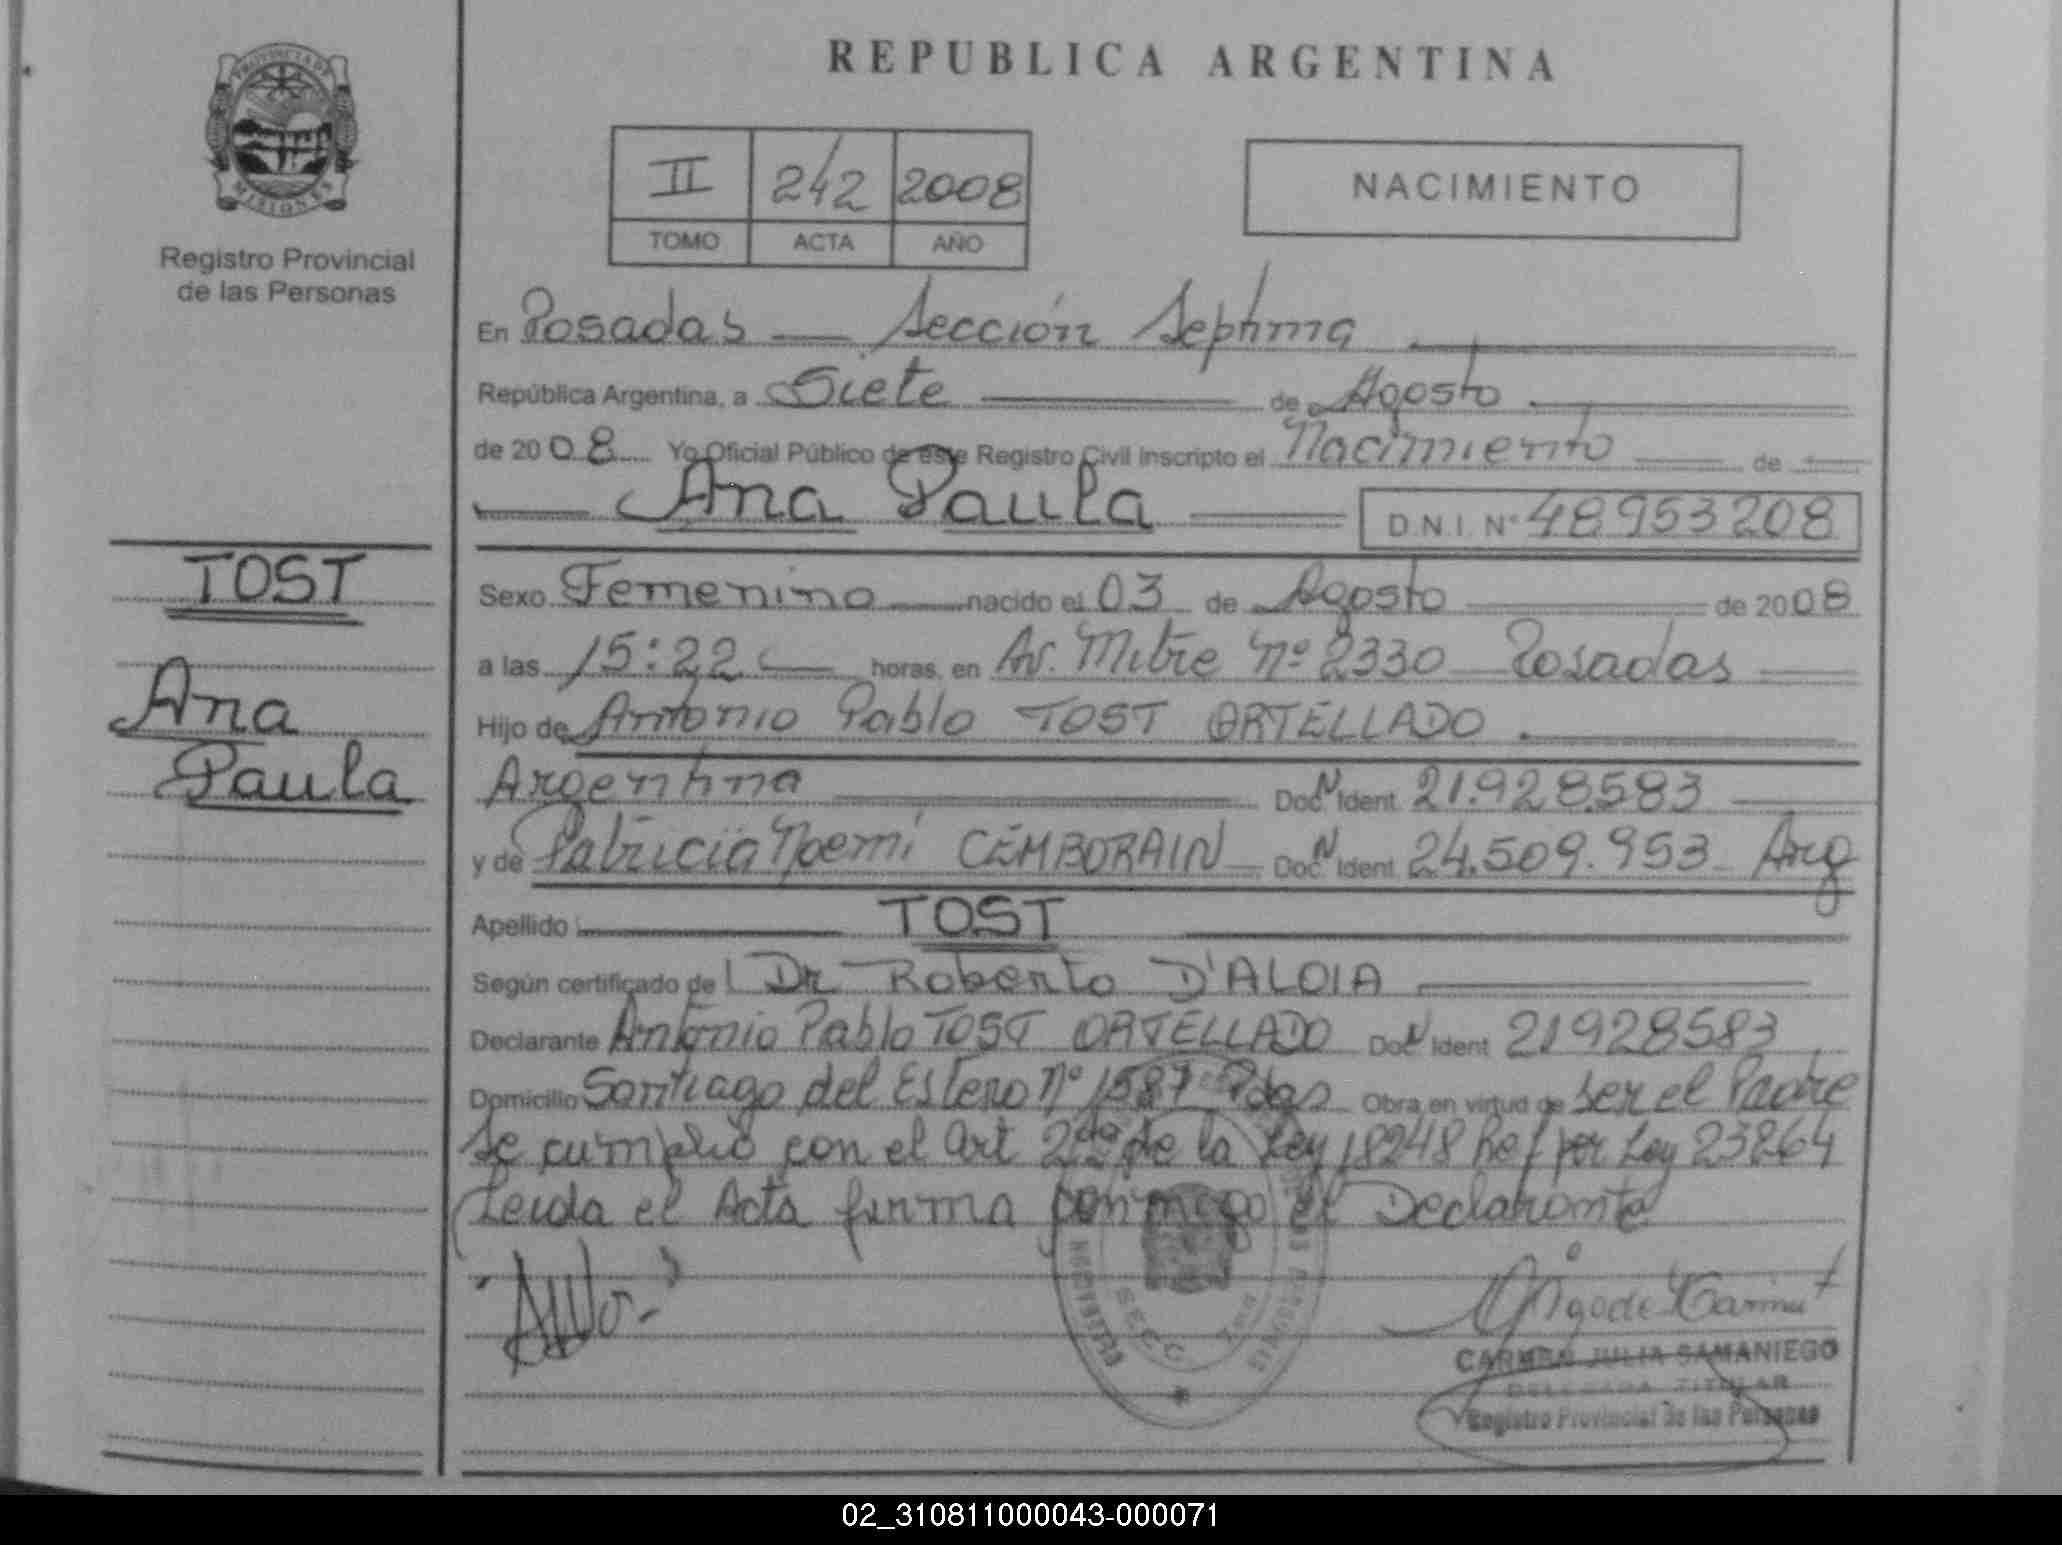 PROVINCIA DE
MISIONES
Registro Provincial
de las Personas
TOST
Ana
Paula
REPUBLICA ARGENTINA
II 242 2008
TOMO ACTA AÑO
NACIMIENTO
En Posadas — Sección Septima
República Argentina, a Siete de Agosto
de 2008 Yo Oficial Público de este Registro Civil inscripto el Nacimiento de
Ana Paula D.N.I. Nº 48953208
Sexo Femenino nacido el 03 de Agosto de 2008
a las 15:22 horas, en Av. Mitre Nº 2330 Posadas
Hijo de Antonio Pablo TOST ORTELLADO
Argentina Doc. N Ident 21.928.583
y de Patricia Noemí CEMBORAIN Doc. N Ident 24.509.953 Arg
Apellido TOST
Según certificado de Dr Roberto D'ALOIA
Declarante Antonio Pablo TOST ORTELLADO Doc. N Ident 21928583
Domicilio Santiago del Estero Nº 1587 Pdas Obra en virtud de ser el Padre
Se cumplió con el Art 2do de la Ley 18248 Ref por Ley 23264
Leida el Acta firma conmigo el Declarante
CARMEN JULIA SAMANIEGO
DELEGADA TITULAR
Registro Provincial de las Personas
02_310811000043-000071